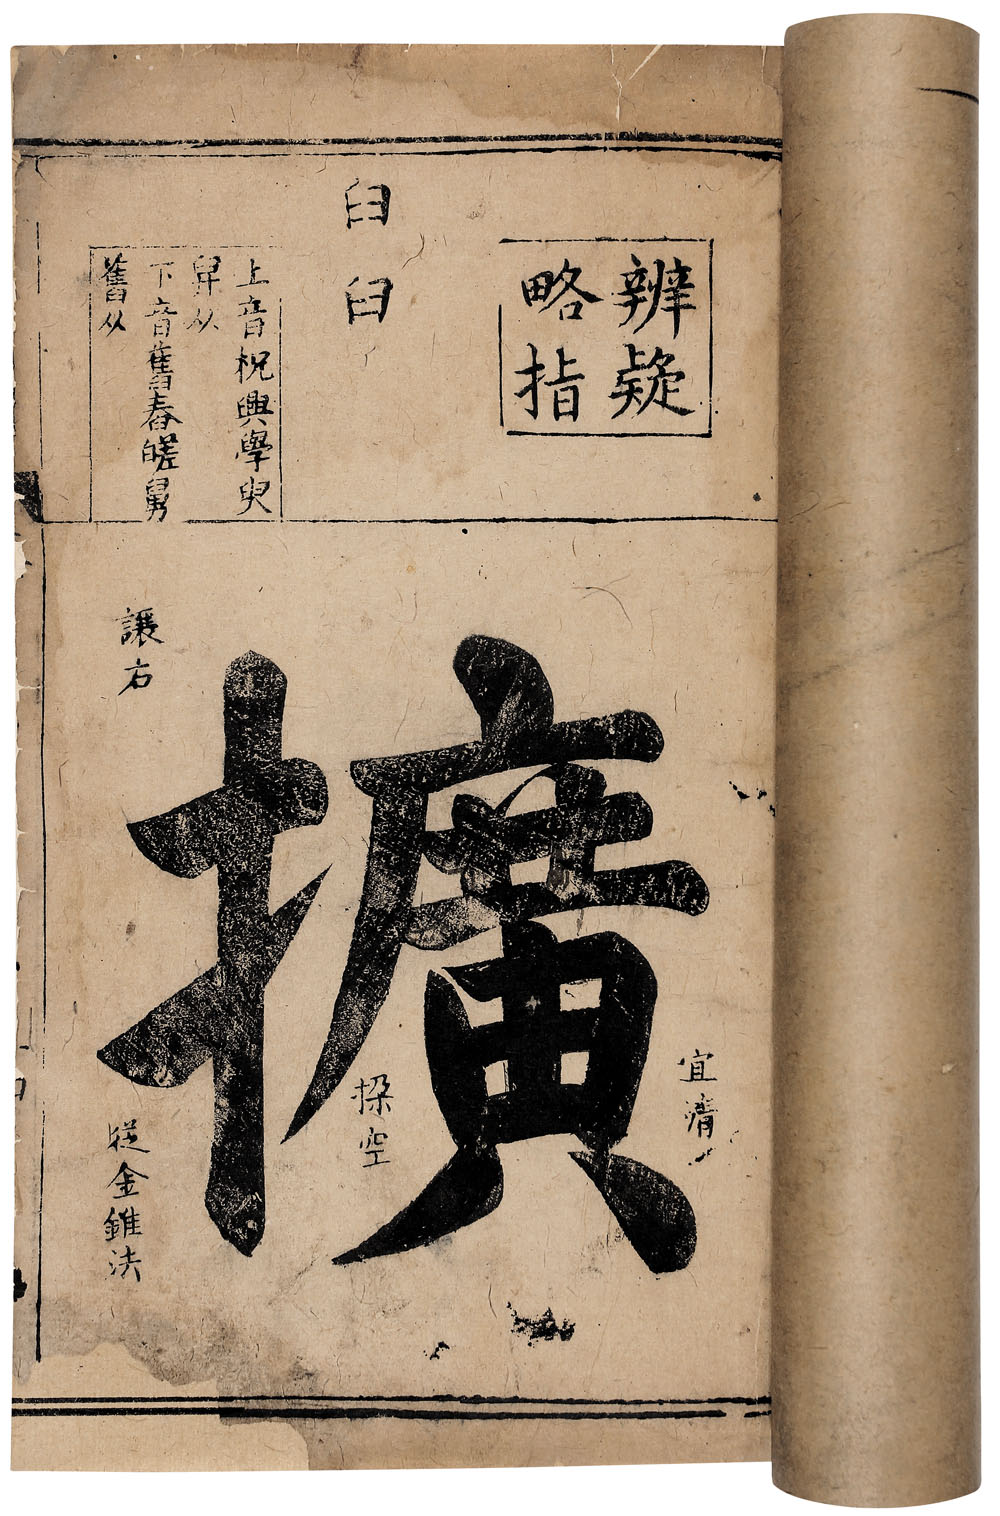 辨疑
略指
臼
臼
上音柷興學臾
舁从
下音舊舂舅
舊从
擴
宜清
探空
讓右
從金錐法